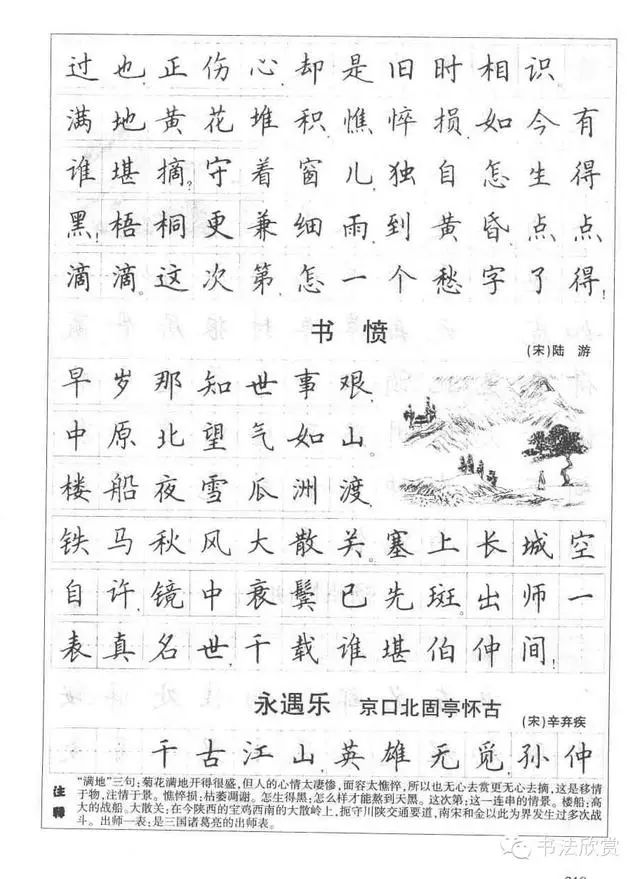 过也，正伤心，却是旧时相识。
满地黄花堆积，憔悴损，如今有
谁堪摘。守着窗儿，独自怎生得
黑！梧桐更兼细雨，到黄昏、点点
滴滴。这次第，怎一个愁字了得！
书 愤
(宋)陆 游
早岁那知世事艰，
中原北望气如山。
楼船夜雪瓜洲渡，
铁马秋风大散关。塞上长城空
自许，镜中衰鬓已先斑。出师一
表真名世，千载谁堪伯仲间！
永遇乐 京口北固亭怀古
(宋)辛弃疾
千古江山，英雄无觅，孙仲
注释
"满地"三句：菊花满地开得很盛，但人的心情太凄惨，面容太憔悴，所以也无心去赏更无心去摘，这是移情
于物，注情于景。憔悴损：枯萎凋谢。怎生得黑：怎么样才能熬到天黑。这次第：这一连串的情景。楼船：高
大的战船。大散关：在今陕西的宝鸡西南的大散岭上，扼守川陕交通要道，南宋和金以此为界发生过多次战
斗。出师一表：是三国诸葛亮的出师表。
书法欣赏